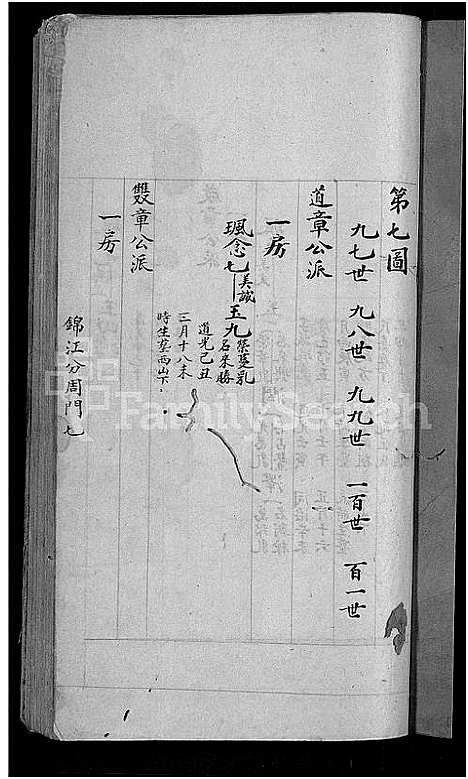 第七圖
九七世 九八世 九九世 一百世 百一世
道章公派
一房
珮念七 美誠 玉九 榮蔓乳名來勝
道光己丑
三月十八未
時生塟西山下
雙章公派
一房
錦江分周門七
FamilySearch